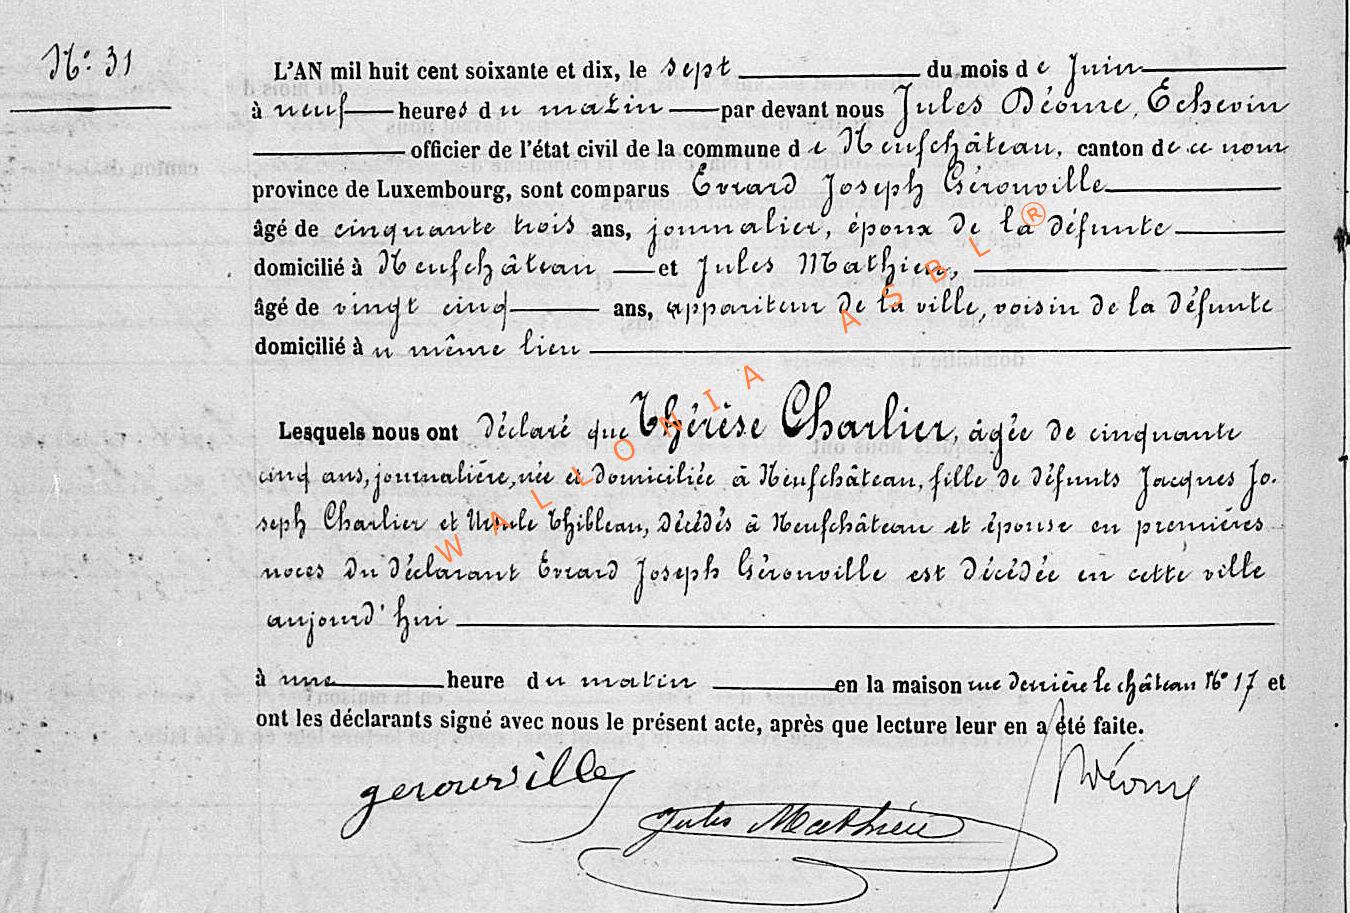 N° 31
L'AN mil huit cent soixante et dix, le sept du mois de Juin
à neuf heures du matin par devant nous Jules Déome, Échevin
officier de l'état civil de la commune de Neufchâteau, canton de ce nom
province de Luxembourg, sont comparus Evrard Joseph Gérouville
âgé de cinquante trois ans, journalier, époux de la défunte
domicilié à Neufchâteau et Jules Mathieu,
âgé de vingt cinq ans, appariteur de la ville, voisin de la défunte
domicilié à u même lieu
Lesquels nous ont déclaré que Thérèse Charlier, âgée de cinquante
cinq ans, journalière, née et domiciliée à Neufchâteau, fille de défunts Jacques Jo-
seph Charlier et Ursule Thibleau, décédés à Neufchâteau et épouse en premières
noces du déclarant Evrard Joseph Gérouville est décédée en cette ville
aujourd'hui
à une heure du matin en la maison rue derrière le château N° 17 et
ont les déclarants signé avec nous le présent acte, après que lecture leur en a été faite.
gerouville
Jules Mathieu
JDéome
WALLONIA ASBL ®